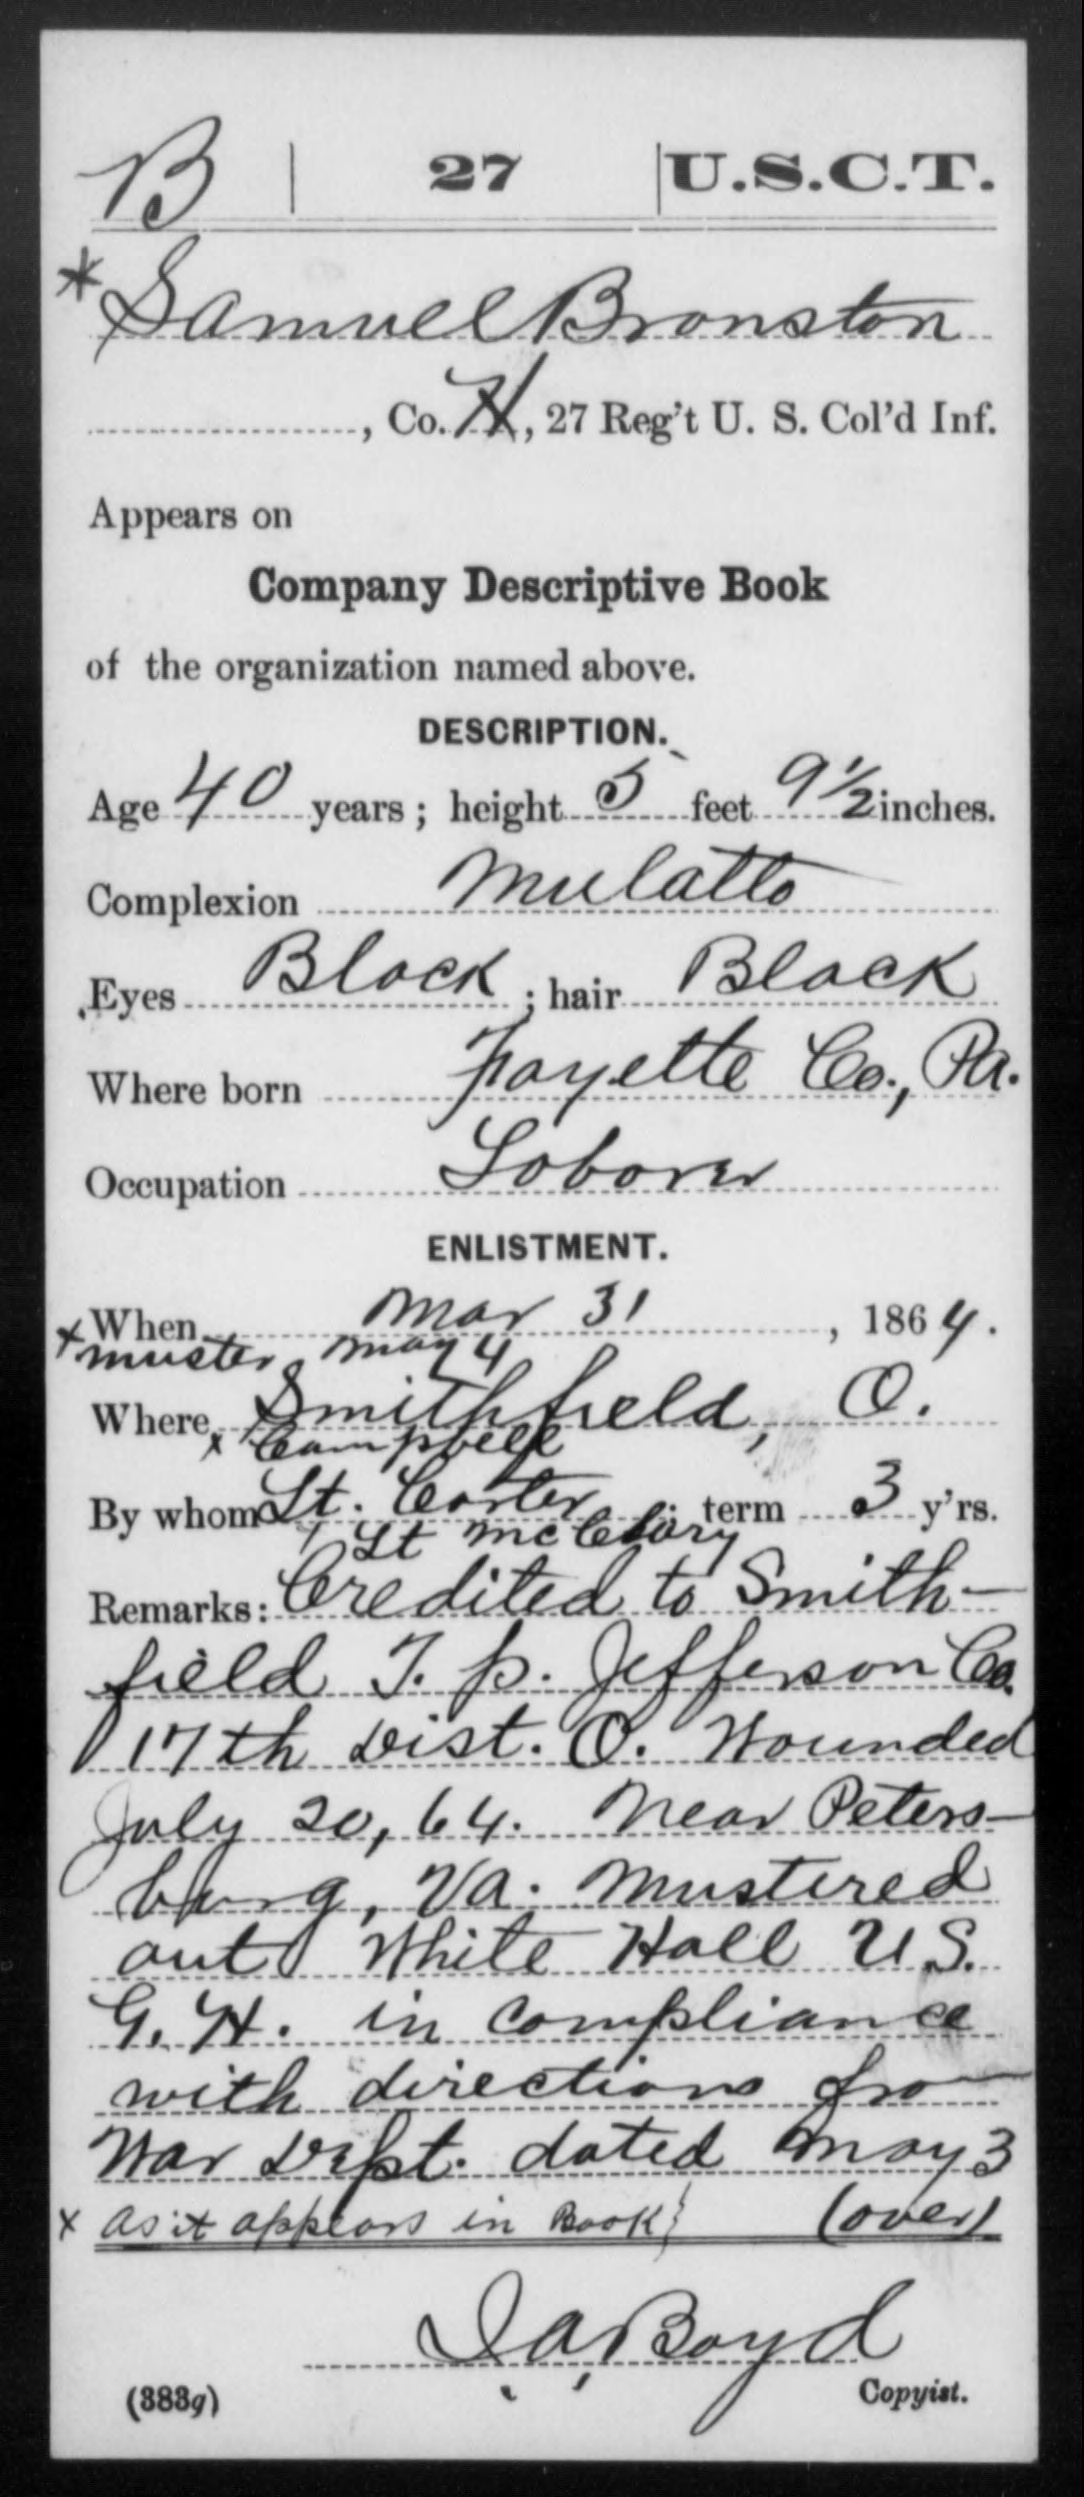 B | 27 | U.S.C.T.
* Samuel Bronston
, Co. H, 27 Reg't U. S. Col'd Inf.
Appears on
Company Descriptive Book
of the organization named above.
DESCRIPTION.
Age 40 years; height 5 feet 9 1/2 inches.
Complexion Mulatto
Eyes Black; hair Black
Where born Fayette Co., Pa.
Occupation Laborer
ENLISTMENT.
When Mar 31, 1864.
x muster, may 4
Where Smithfield, O.
x Campbell
By whom Lt. Carter; term 3 y'rs.
x Lt McClary
Remarks: Credited to Smith-
field T. p. Jefferson Co.
17th Dist. O. Wounded
July 20, 64. Near Peters-
burg, Va. Mustered
out White Hall U.S.
G. H. in compliance
with directions from
War Dept. dated May 3
x as it appears in Book} (over)
J A Boyd
(383g) Copyist.